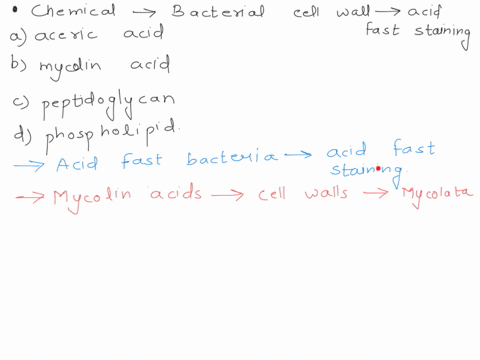 • Chemical → Bacterial cell wall → acid
fast staining
a) aceric acid
b) mycolin acid
c) peptidoglycan
d) phospholipid.
→ Acid fast bacteria → acid fast
staining
→ Mycolin acids → cell walls → Mycolata